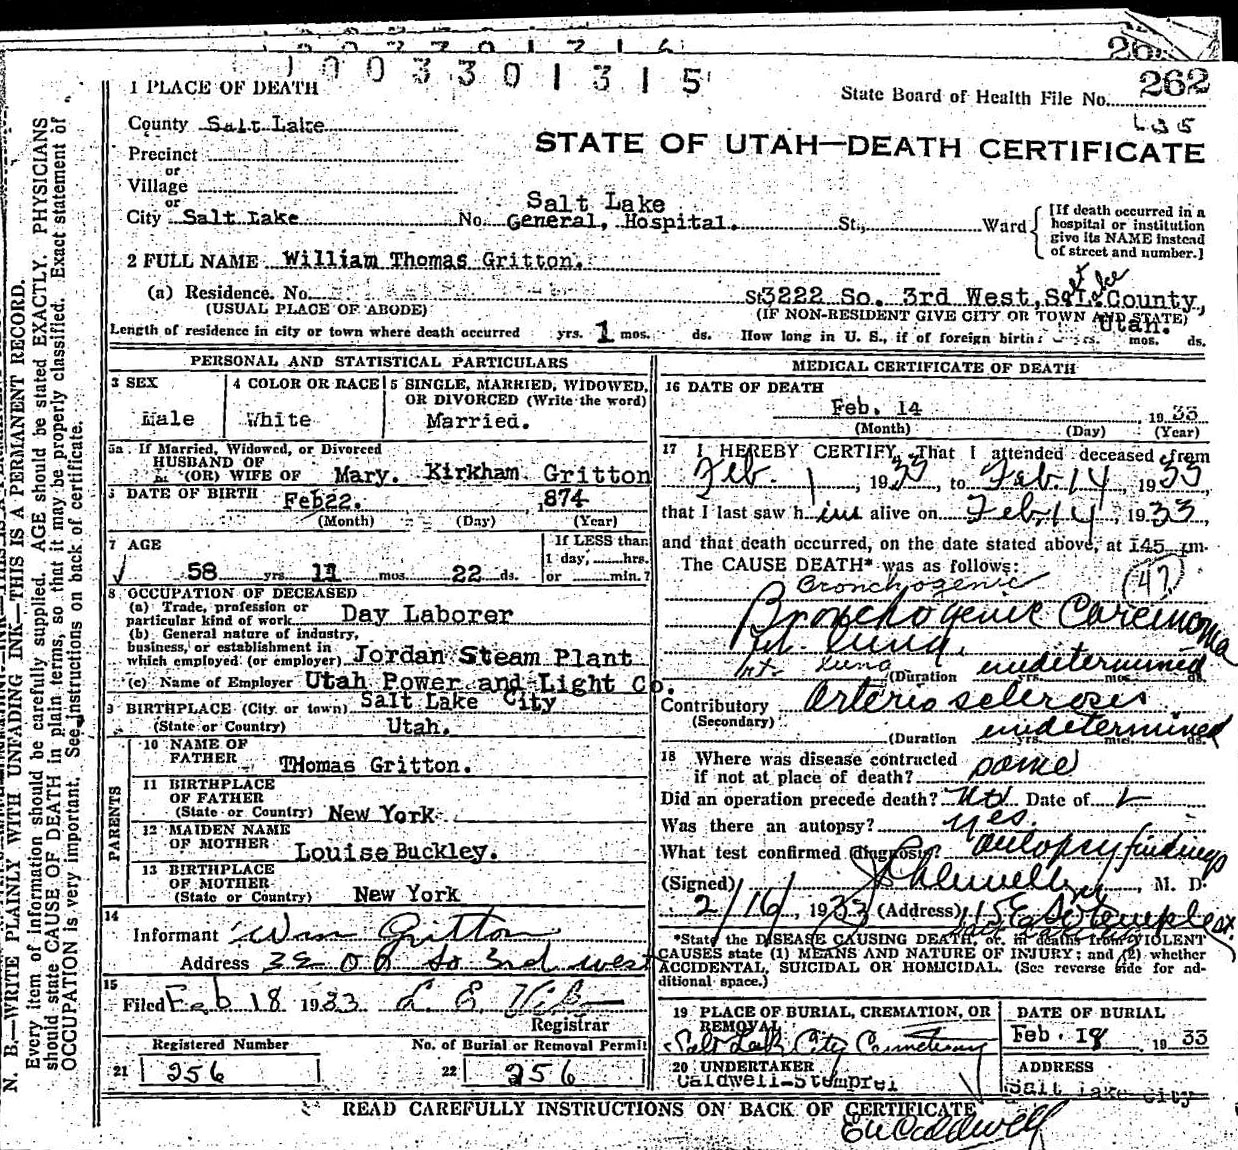 1003301315
262
1 PLACE OF DEATH
State Board of Health File No.
County Salt Lake
STATE OF UTAH—DEATH CERTIFICATE
Precinct
or
Village
or
City Salt Lake No. Salt Lake General, Hospital. St., Ward
[If death occurred in a
hospital or institution
give its NAME instead
of street and number.]
2 FULL NAME William Thomas Gritton.
(a) Residence. No. St. 3222 So. 3rd West, Salt Lake County, Utah.
(USUAL PLACE OF ABODE) (IF NON-RESIDENT GIVE CITY OR TOWN AND STATE)
Length of residence in city or town where death occurred yrs. 1 mos. ds. How long in U. S., if of foreign birth: yrs. mos. ds.
PERSONAL AND STATISTICAL PARTICULARS
3 SEX
Male
4 COLOR OR RACE
White
5 SINGLE, MARRIED, WIDOWED,
OR DIVORCED (Write the word)
Married.
5a If Married, Widowed, or Divorced
HUSBAND OF
(OR) WIFE OF Mary. Kirkham Gritton
6 DATE OF BIRTH Feb 22. 1874
(Month) (Day) (Year)
7 AGE
58 yrs. 11 mos. 22 ds.
If LESS than
1 day, hrs.
or min.?
8 OCCUPATION OF DECEASED
(a) Trade, profession or
particular kind of work Day Laborer
(b) General nature of industry,
business, or establishment in
which employed (or employer) Jordan Steam Plant
(c) Name of Employer Utah Power and Light Co.
9 BIRTHPLACE (City or town) Salt Lake City
(State or Country) Utah.
PARENTS
10 NAME OF
FATHER THomas Gritton.
11 BIRTHPLACE
OF FATHER
(State or Country) New York
12 MAIDEN NAME
OF MOTHER Louise Buckley.
13 BIRTHPLACE
OF MOTHER
(State or Country) New York
14
Informant Wm Gritton
Address So 3rd West
15
Filed Feb 18 1933 L. E.
Registrar
Registered Number No. of Burial or Removal Permit
21 256 22 256
MEDICAL CERTIFICATE OF DEATH
16 DATE OF DEATH
Feb. 14 1933
(Month) (Day) (Year)
17 I HEREBY CERTIFY, That I attended deceased from
Feb. 1, 1933, to Feb. 14, 1933,
that I last saw him alive on Feb. 14, 1933,
and that death occurred, on the date stated above, at 145 m.
The CAUSE DEATH* was as follows:
Bronchogenic 47
Bronchogenic Carcinoma
rt. lung.
rt. lung (Duration undetermined yrs. mos. ds.
Contributory Arterio sclerosis
(Secondary)
(Duration undetermined yrs. mos. ds.
18 Where was disease contracted
if not at place of death? same
Did an operation precede death? No Date of
Was there an autopsy? yes.
What test confirmed diagnosis? autopsy findings
(Signed) , M. D.
2/16, 1933 (Address) 15 E So Temple St.
*State the DISEASE CAUSING DEATH, or in deaths from VIOLENT
CAUSES state (1) MEANS AND NATURE OF INJURY; and (2) whether
ACCIDENTAL, SUICIDAL OR HOMICIDAL. (See reverse side for ad-
ditional space.)
19 PLACE OF BURIAL, CREMATION, OR
REMOVAL
Salt Lake City Cemetery
DATE OF BURIAL
Feb. 18 1933
20 UNDERTAKER
ADDRESS
Salt Lake City
READ CAREFULLY INSTRUCTIONS ON BACK OF CERTIFICATE
N. B.—WRITE PLAINLY WITH UNFADING INK—THIS IS A PERMANENT RECORD.
Every item of information should be carefully supplied. AGE should be stated EXACTLY. PHYSICIANS
should state CAUSE OF DEATH in plain terms, so that it may be properly classified. Exact statement of
OCCUPATION is very important. See instructions on back of certificate.